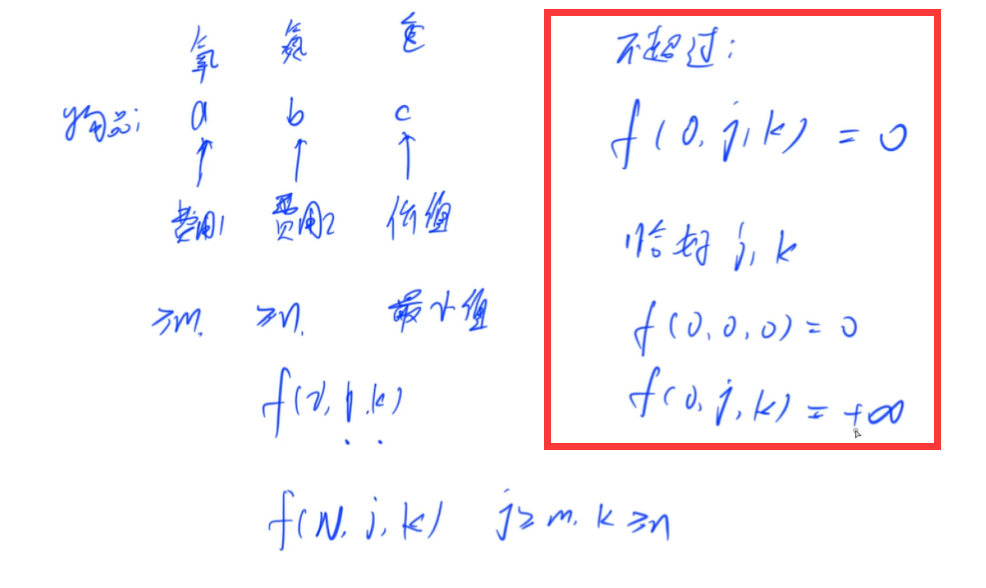 氧 氮 重
物品i a b c
费用1 费用2 价值
≥m. ≥n. 最小值
f(i, j, k)
f(N, j, k) j≥m, k≥n
不超过:
f(0, j, k) = 0
恰好 j, k
f(0, 0, 0) = 0
f(0, j, k) = +∞